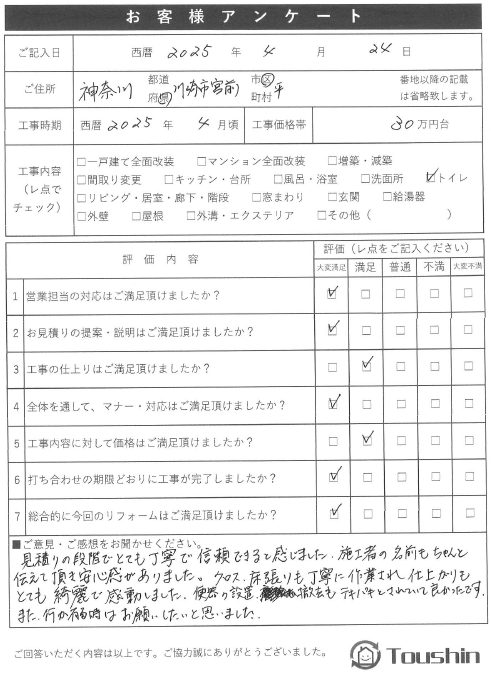 お客様アンケート
ご記入日 西暦 2025 年 4 月 24 日
ご住所 神奈川 都道府県 川崎市宮前 市区町村 平 番地以降の記載は省略致します。
工事時期 西暦 2025 年 4 月頃 工事価格帯 30 万円台
工事内容（レ点でチェック）
□一戸建て全面改装 □マンション全面改装 □増築・減築
□間取り変更 □キッチン・台所 □風呂・浴室 □洗面所 ☑トイレ
□リビング・居室・廊下・階段 □窓まわり □玄関 □給湯器
□外壁 □屋根 □外溝・エクステリア □その他（ ）
評価内容 評価（レ点をご記入ください）
大変満足 満足 普通 不満 大変不満
1 営業担当の対応はご満足頂けましたか？ ☑ □ □ □ □
2 お見積りの提案・説明はご満足頂けましたか？ ☑ □ □ □ □
3 工事の仕上りはご満足頂けましたか？ □ ☑ □ □ □
4 全体を通して、マナー・対応はご満足頂けましたか？ ☑ □ □ □ □
5 工事内容に対して価格はご満足頂けましたか？ □ ☑ □ □ □
6 打ち合わせの期限どおりに工事が完了しましたか？ ☑ □ □ □ □
7 総合的に今回のリフォームはご満足頂けましたか？ ☑ □ □ □ □
■ご意見・ご感想をお聞かせください。
見積りの段階でとても丁寧で信頼できると感じました。施工者の名前もちゃんと
伝えて頂き安心感がありました。クロス、床張りも丁寧に作業され仕上がりも
とても綺麗で感動しました。便器の設置、撤去もテキパキとされていて良かったです。
また、何か有る時はお願いしたいと思いました。
ご回答いただく内容は以上です。ご協力誠にありがとうございました。
Toushin